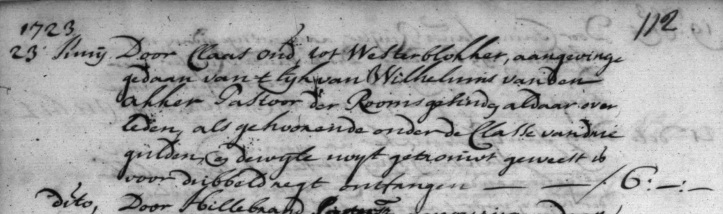 1723 112
23 Junij Door Claas Oud, tot Westerblokker, aangevinge
gedaan van 't lijk van Wilhelmus van den
Akker Pastoor der Roomsgesinde, aldaar over
leden, als gehoorende onder de Classe van drie
gulden, en dewijle noijt getrouwt geweest is
voor dubbeld regt ontfangen — — / 6:—:—
dito, Door Hillebrand